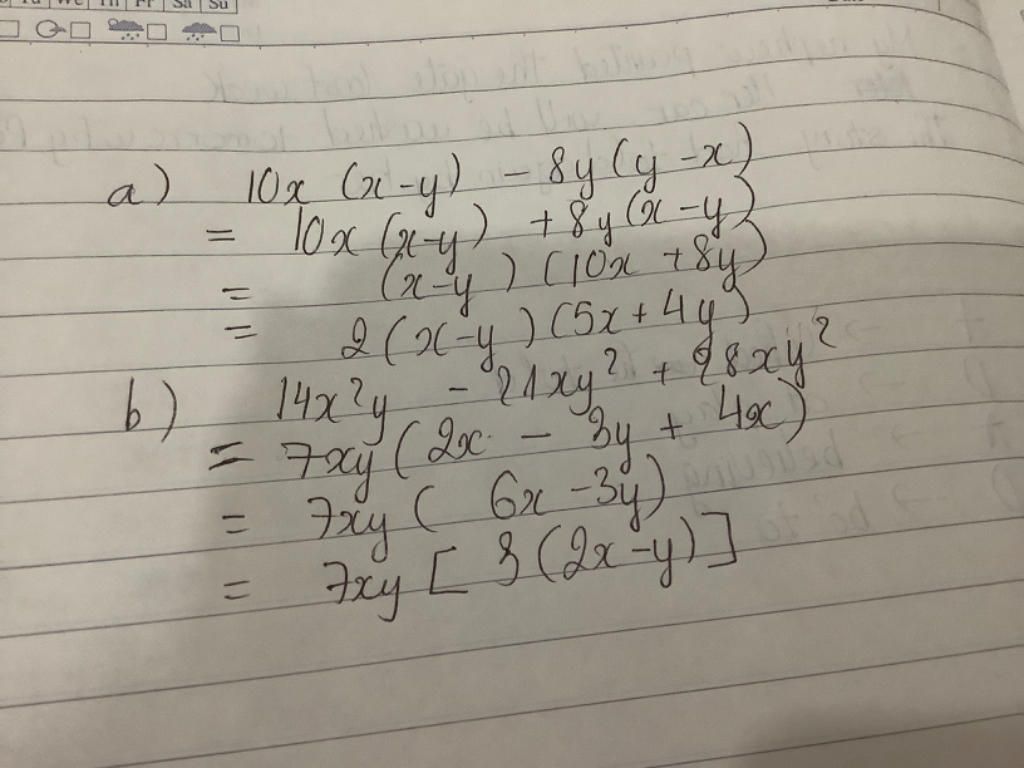 Tu We Th Fr Sa Su
a) 10x (x-y) - 8y (y-x)
= 10x (x-y) + 8y (x-y)
= (x-y) (10x + 8y)
= 2 (x-y) (5x + 4y)
b) 14x²y - 21xy² + 28xy²
= 7xy (2x - 3y + 4x)
= 7xy ( 6x - 3y)
= 7xy [ 3 (2x-y) ]